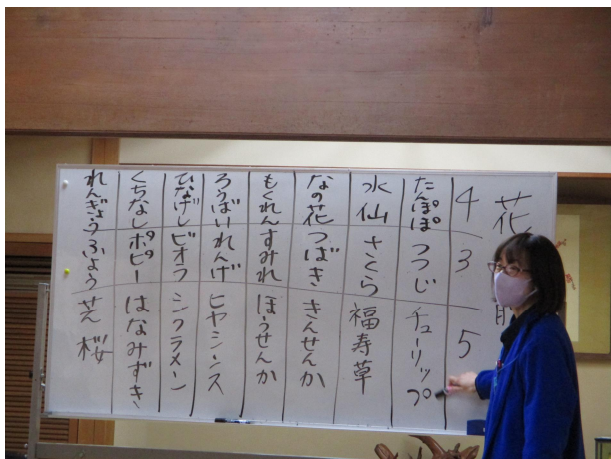 花
4 3 5
たんぽぽ つつじ チューリップ
水仙 さくら 福寿草
なの花 つばき きんせんか
もくれん すみれ ほうせんか
ろうばい れんげ ヒヤシンス
ひなげし ビオラ シクラメン
くちなし ポピー はなみずき
れんぎょう ふよう 芝桜